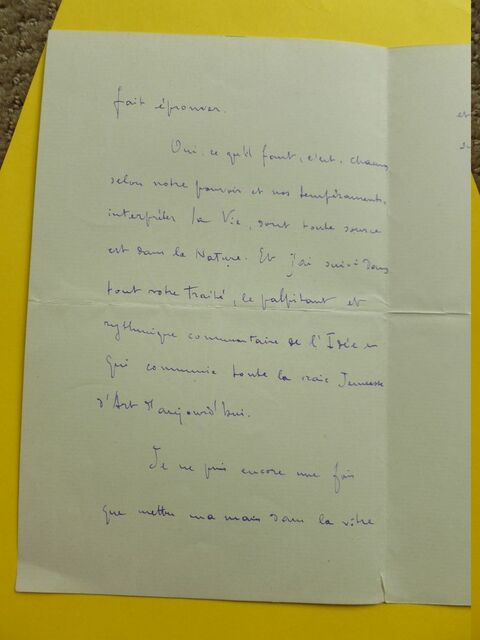 fait éprouver.
Oui, ce qu'il faut, c'est, chacun
selon notre pouvoir et nos tempéraments,
interpréter la Vie, dont toute source
est dans la Nature. Et j'ai suivi dans
tout votre Traité, le palpitant et
rythmique commentaire de l'Idée en
qui communie toute la vraie Jeunesse
d'Art d'aujourd'hui.
Je ne puis encore une fois
que mettre ma main dans la vôtre
et